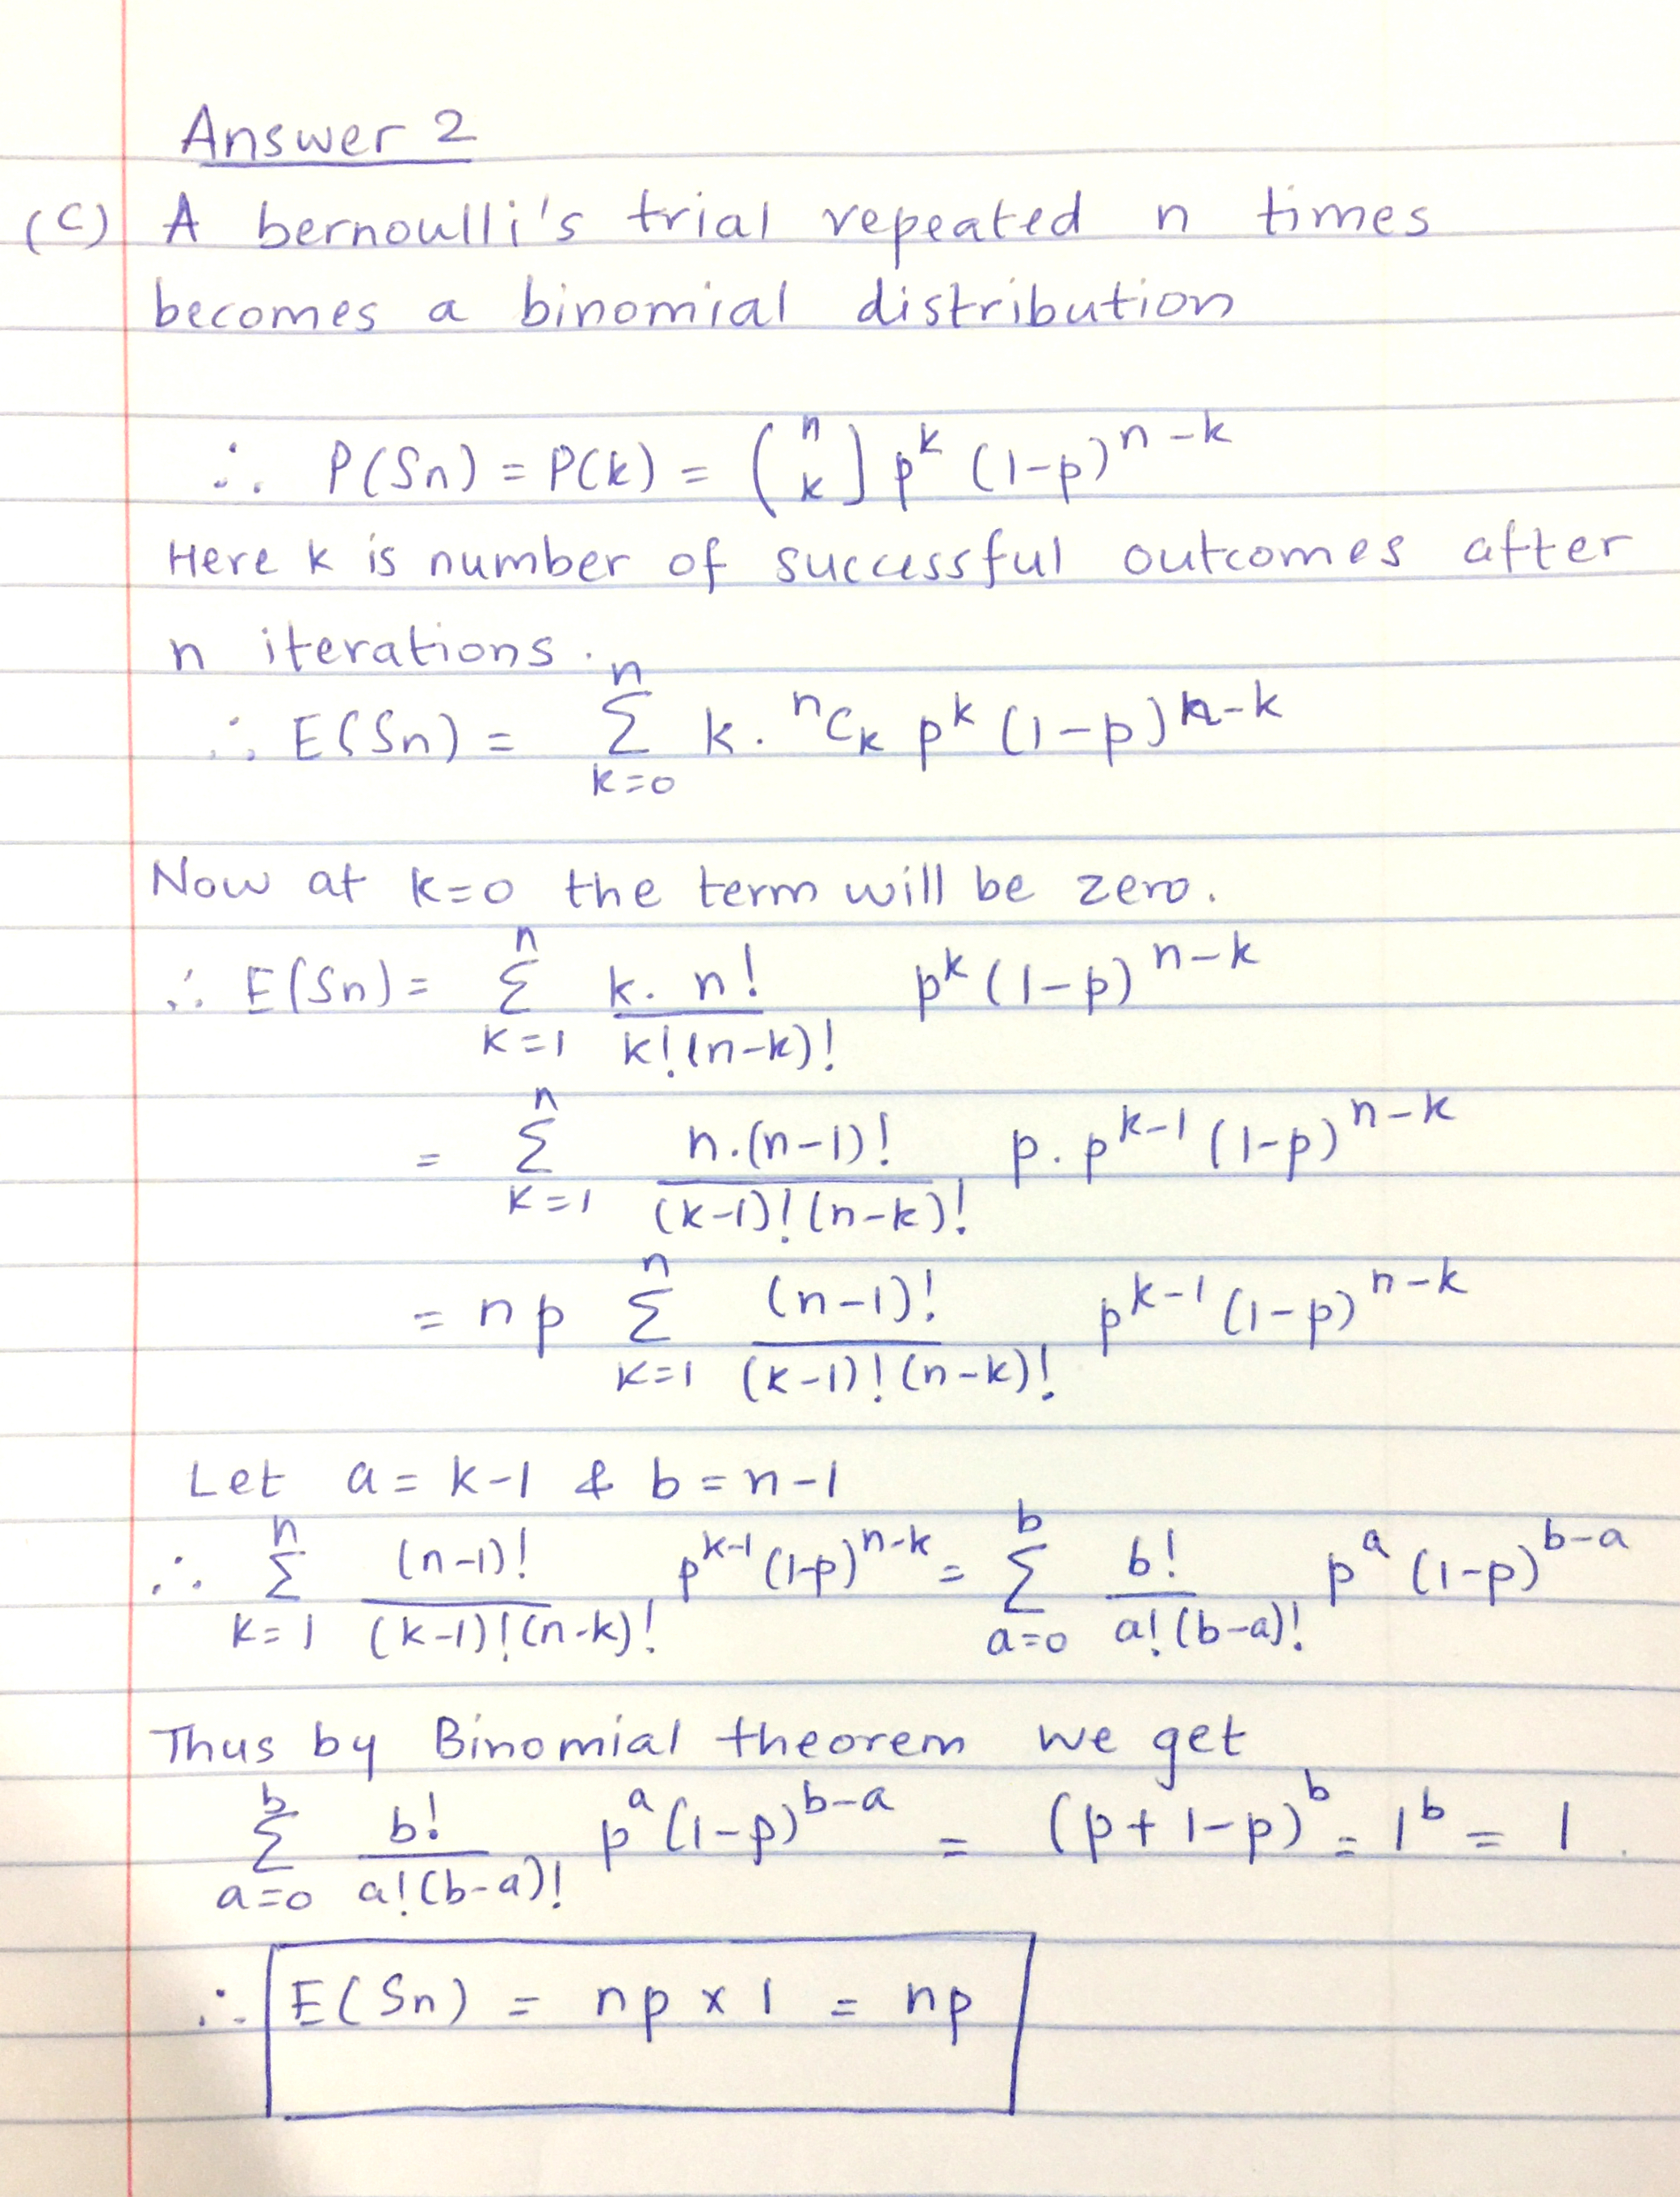 Answer 2
(C) A bernoulli's trial repeated n times
becomes a binomial distribution
∴ P(Sn) = P(k) = (n k] p^k (1-p)^n-k
Here k is number of successful outcomes after
n iterations.
∴ E(Sn) = n Σ k=0 k. ^nC_k p^k (1-p)^n-k
Now at k=0 the term will be zero.
∴ E(Sn) = n Σ k=1 k. n! / k!(n-k)! p^k (1-p)^n-k
= n Σ k=1 n.(n-1)! / (k-1)!(n-k)! p. p^k-1 (1-p)^n-k
= np n Σ k=1 (n-1)! / (k-1)!(n-k)! p^k-1 (1-p)^n-k
Let a = k-1 & b = n-1
∴ n Σ k=1 (n-1)! / (k-1)!(n-k)! p^k-1 (1-p)^n-k = b Σ a=0 b! / a!(b-a)! p^a (1-p)^b-a
Thus by Binomial theorem we get
b Σ a=0 b! / a!(b-a)! p^a (1-p)^b-a = (p+1-p)^b = 1^b = 1.
∴ E(Sn) = np x 1 = np